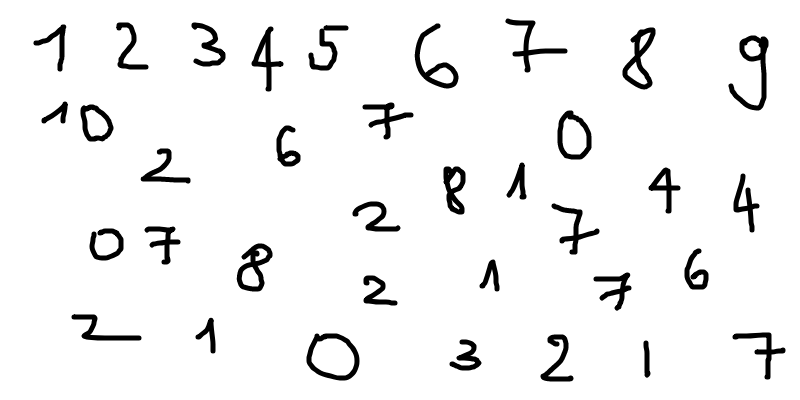 1 2 3 4 5 6 7 8 9
10 6 7 0
2 8 1 4 4
0 7 8 2 7
2 1 7 6
2 1 0 3 2 1 7